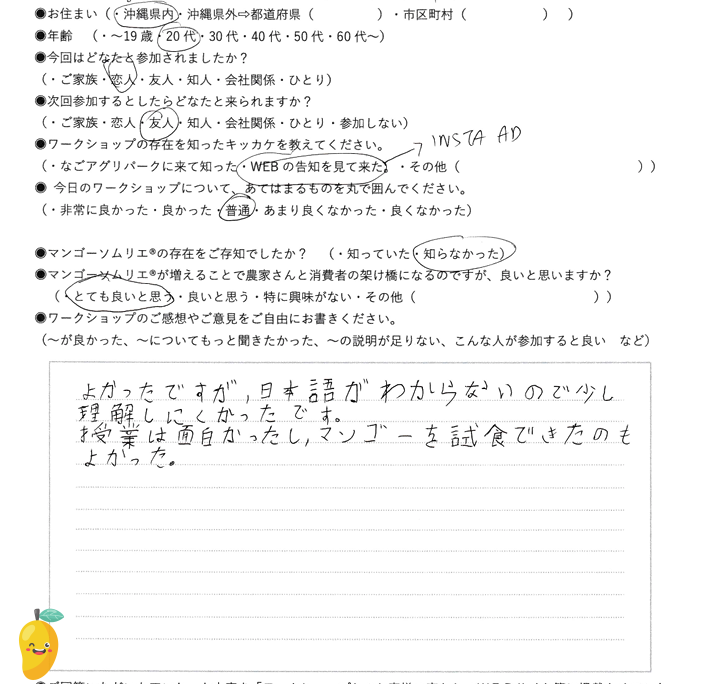 ●お住まい（・沖縄県内・沖縄県外⇨都道府県（　　　　　）・市区町村（　　　　　　）　）
●年齢　（・～19歳・20代・30代・40代・50代・60代～）
●今回はどなたと参加されましたか？
（・ご家族・恋人・友人・知人・会社関係・ひとり）
●次回参加するとしたらどなたと来られますか？
（・ご家族・恋人・友人・知人・会社関係・ひとり・参加しない）
●ワークショップの存在を知ったキッカケを教えてください。
INSTA AD
（・なごアグリパークに来て知った・WEBの告知を見て来た。・その他（　　　　　　　　　　　　　　））
● 今日のワークショップについて、あてはまるものを丸で囲んでください。
（・非常に良かった・良かった・普通・あまり良くなかった・良くなかった）
●マンゴーソムリエ®の存在をご存知でしたか？　（・知っていた・知らなかった）
●マンゴーソムリエ®が増えることで農家さんと消費者の架け橋になるのですが、良いと思いますか？
（・とても良いと思う・良いと思う・特に興味がない・その他（　　　　　　　　　　　　　　））
●ワークショップのご感想やご意見をご自由にお書きください。
（～が良かった、～についてもっと聞きたかった、～の説明が足りない、こんな人が参加すると良い　など）
よかったですが,日本語がわからないので少し
理解しにくかったです。
授業は面白かったし,マンゴーを試食できたのも
よかった。